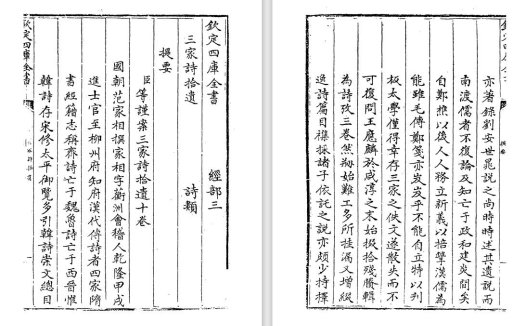 欽定四庫全書 經部三
三家詩拾遺 詩類
提要
臣等謹案三家詩拾遺十卷
國朝范家相撰家相字蘅洲會稽人乾隆甲戌
進士官至柳州府知府漢代傳詩者四家隋
書經籍志稱齊詩亡于魏魯詩亡于西晉惟
韓詩存宋修太平御覽多引韓詩崇文總目
欽定四庫全書
亦著錄劉安世晁說之尚時時述其遺說而
南渡儒者不復論及知亡于政和建炎間矣
自鄭樵以後人人務立新義以掊擊漢儒為
能雖毛傳鄭箋亦岌岌乎不能自立特以列
板太學僅得幸存三家之佚文遂散失而不
可復問王應麟於咸淳之末始掇拾殘賸輯
為詩攷三卷然剏始難工多所挂漏又增綴
逸詩篇目襍採諸子依託之說亦頗少持擇
欽定四庫全書